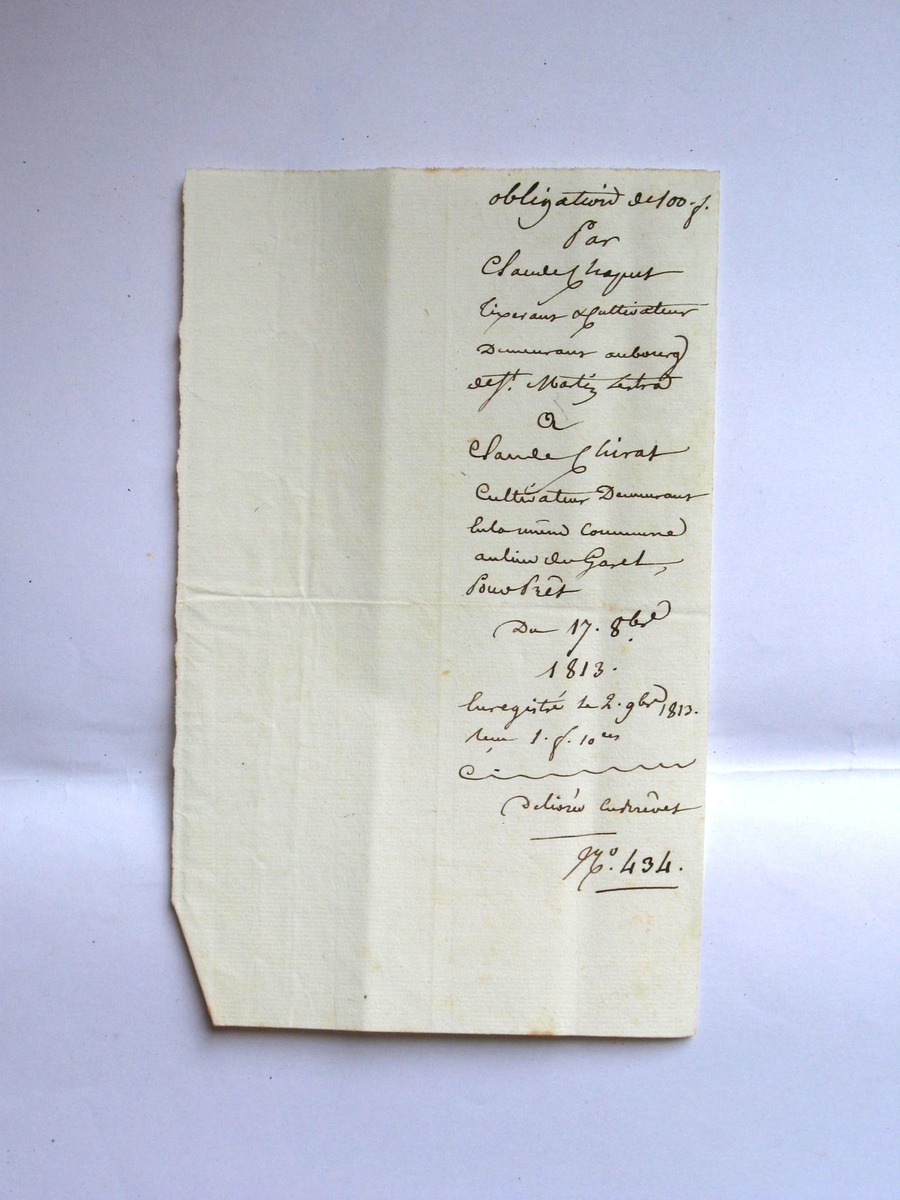 obligation de 100. f.
Par
Claude Chaput
tixerant & Cultivateur
Demeurant au bourg
de St. Martin Lestra
a
Claude Chirat
Cultivateur Demeurant
en la même Commune
au lieu du Garet,
Pour Prêt
Du 17. 8bre
1813.
Enregistré le 2. 9bre 1813.
reçu 1. f. 10 ces
Délivré en Brevet
No. 434.